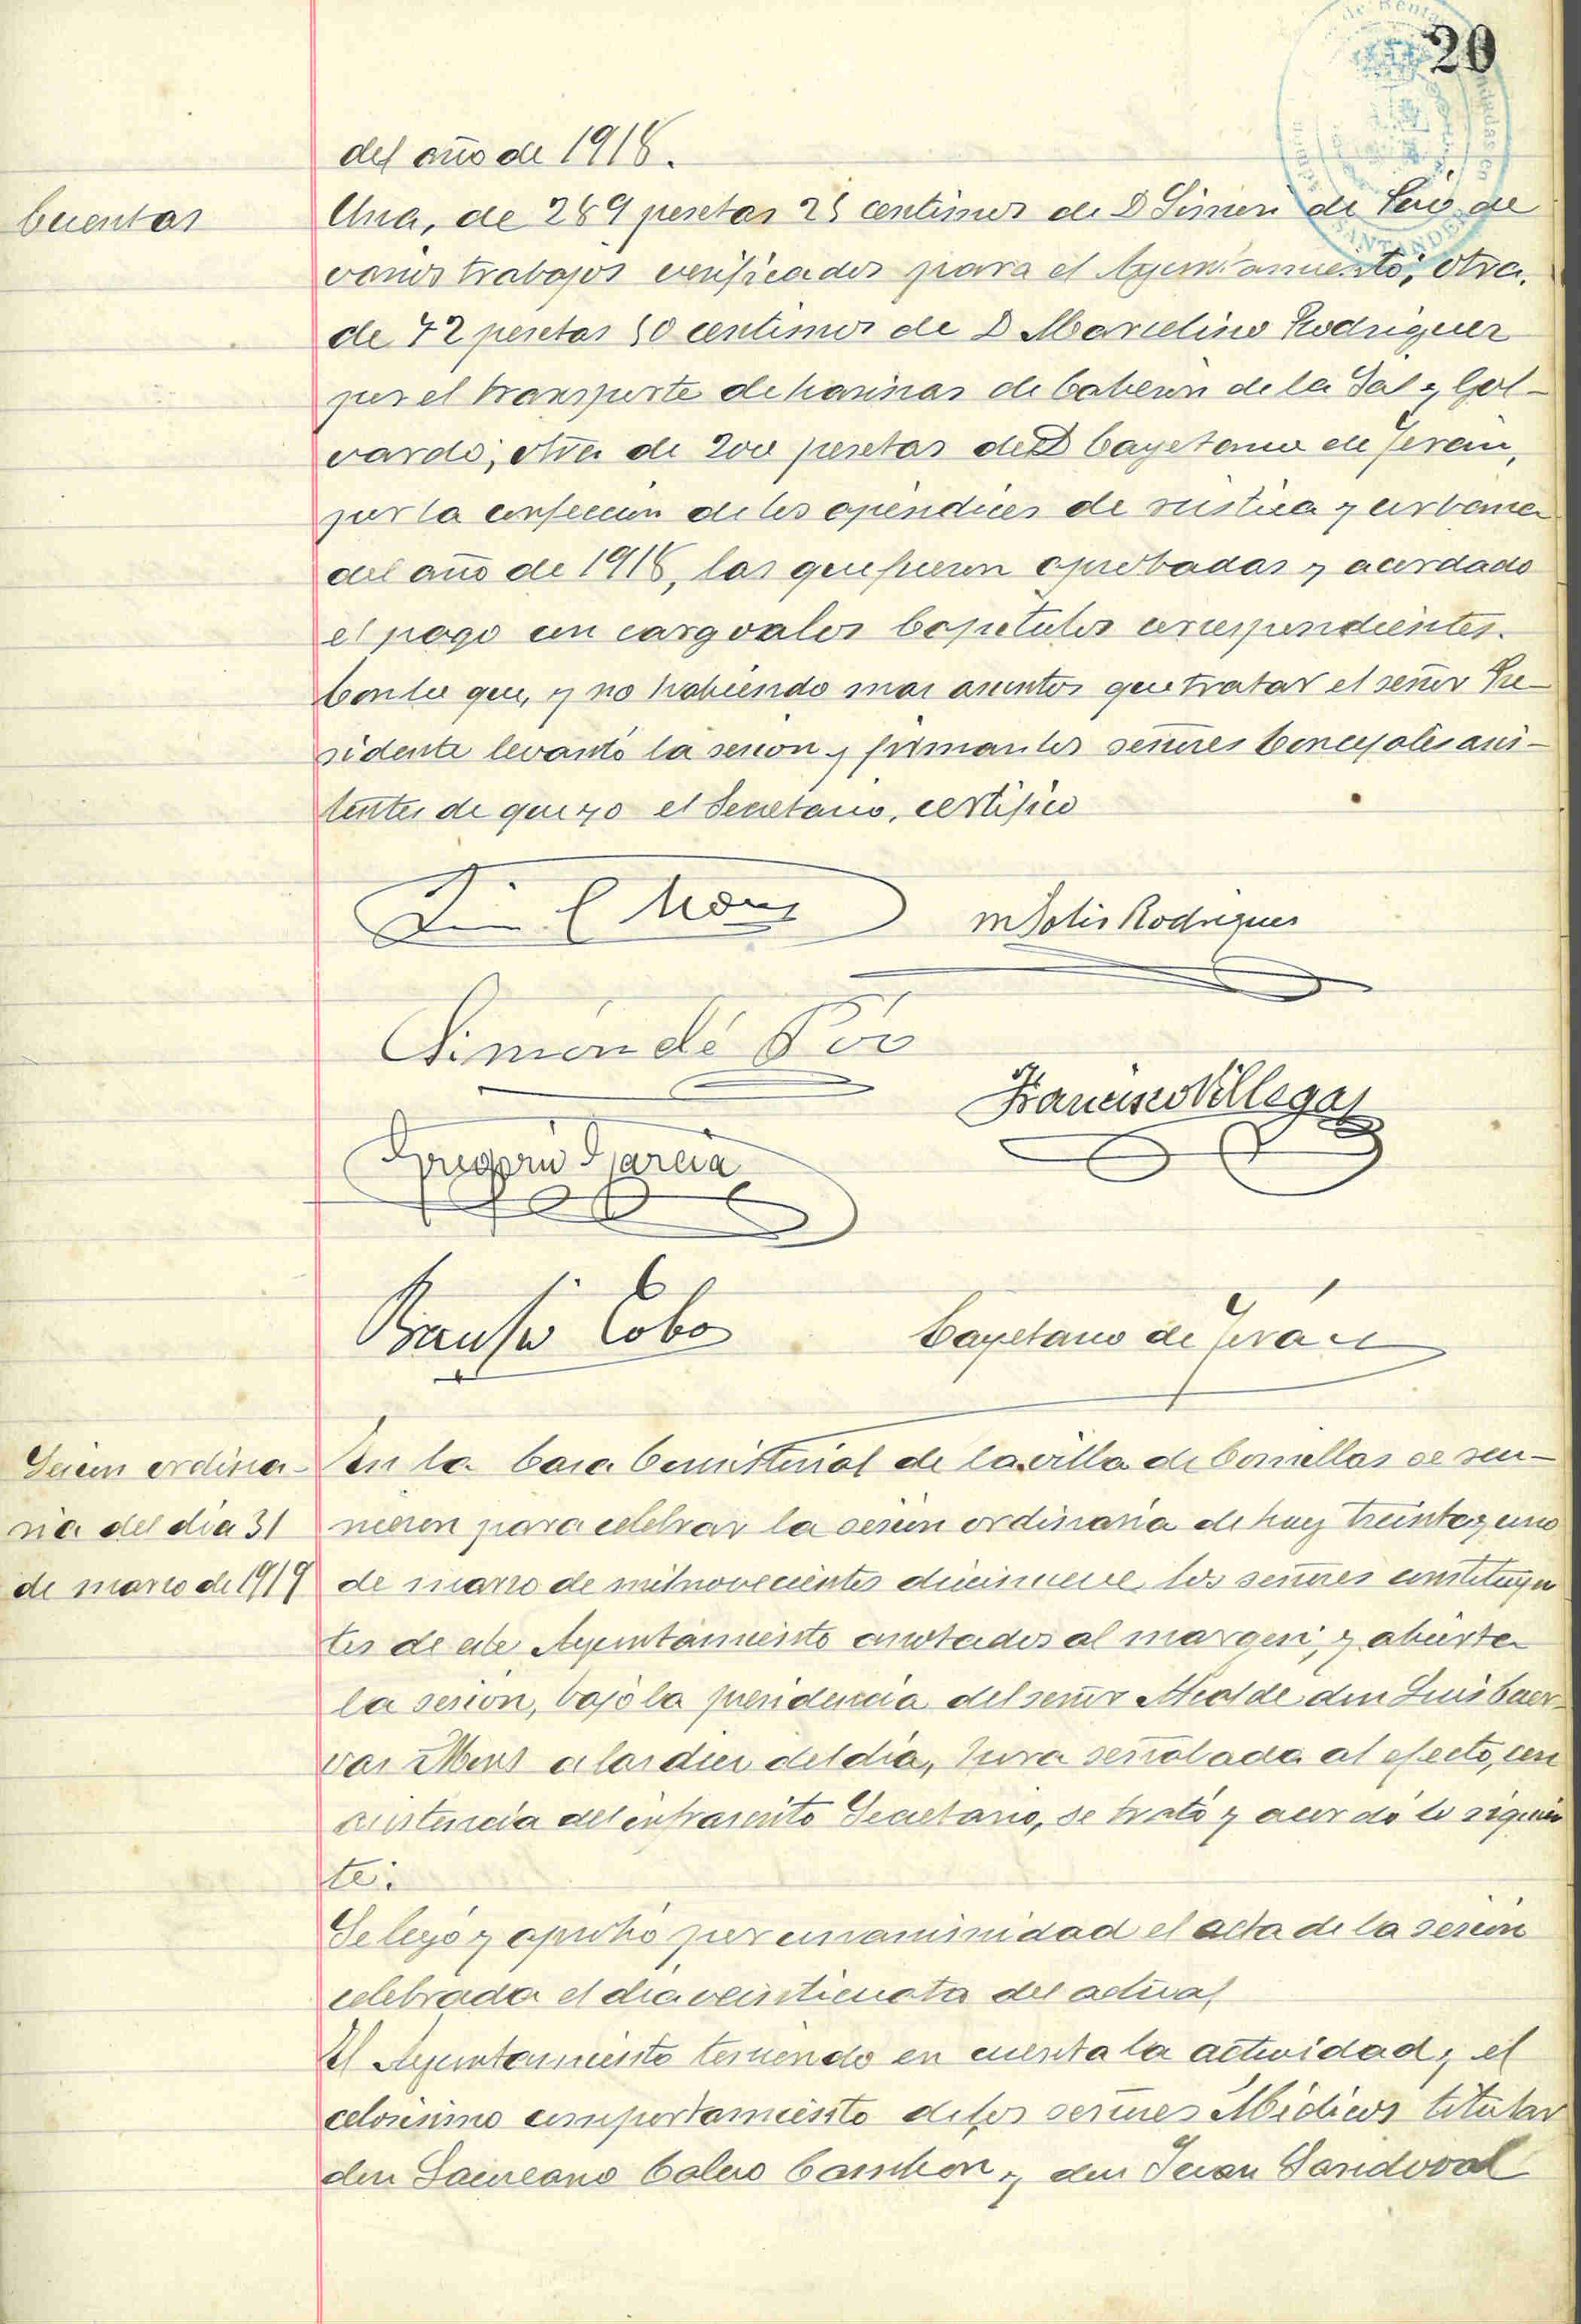 20
del año de 1918.
Cuentas
Una, de 289 pesetas 25 centimos de D Simon de Poo de
varios trabajos verificados para el Ayuntamiento; otra,
de 72 pesetas 50 centimos de D Marcelino Rodriguez
por el transporte de harinas de Cabezon de la Sal y Gol-
vardo; otra de 200 pesetas de D Cayetano de Terán,
por la confeccion de los apéndices de rústica y urbana
del año de 1918, las que fueron aprobadas y acordado
el pago con cargo a los Capitulos correspondientes.
Con lo que, y no habiendo mas asuntos que tratar el señor Pre-
sidente levantó la sesion y firman los señores Concejales asis-
tentes de que yo el Secretario, certifico
M Solis Rodriguez
Simón de Poó
Francisco Villegas
Gregorio Garcia
Cobo
Cayetano de Terán
Sesion ordina-
ria del dia 31
de marzo de 1919
En la Casa Consistorial de la villa de Comillas se reu-
nieron para celebrar la sesion ordinaria de hoy treinta y uno
de marzo de mil novecientos diecinueve los señores constituyen
tes de este Ayuntamiento anotados al margen; y abierta
la sesion, bajo la presidencia del señor Alcalde don Luis
a las diez del dia, hora señalada al efecto, con
asistencia del infrascrito Secretario, se trató y acordó lo siguien
te:
Se leyó y aprobó por unanimidad el acta de la sesion
celebrada el dia veinticuatro del actual
El Ayuntamiento teniendo en cuenta la actividad y el
celosisimo comportamiento de los señores Médicos titular
don Laureano Calvo y don Juan Sandoval